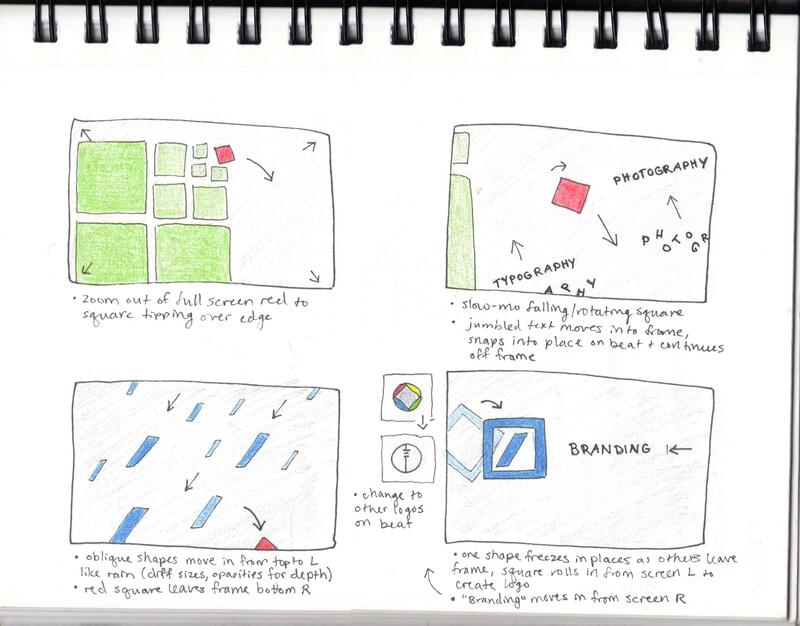 • zoom out of full screen reel to
square tipping over edge
PHOTOGRAPHY
PHOTOGR
TYPOGRAPHY
APHY
• slow-mo falling/rotating square
• jumbled text moves into frame,
snaps into place on beat + continues
off frame
• oblique shapes move in from top to L
like rain (diff sizes, opacities for depth)
• red square leaves frame bottom R
• change to
other logos
on beat
BRANDING
• one shape freezes in places as others leave
frame, square rolls in from screen L to
create logo
• "Branding" moves in from screen R